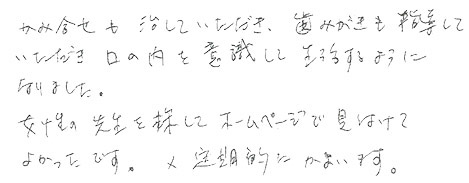 かみ合せも 治していただき、歯みがきも指導して
いただき 口の内を意識して生活するように
なりました。
女性の先生を探してホームページで見つけて
よかったです。 定期的にかよいます。